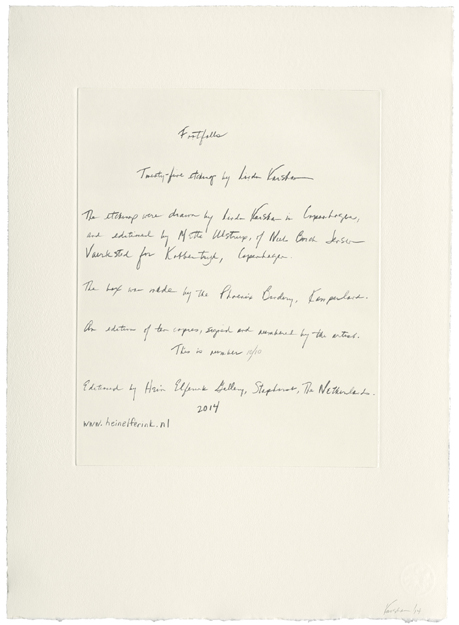 Footfalls
Twenty-five etchings by Linda Karshan
The etchings were drawn by Linda Karshan in Copenhagen,
and editioned by Mette Ulstrup, of Niels Borch Jensen
Værksted for Kobbertryk, Copenhagen.
The box was made by the Phoenix Bindery, Kamperland.
An edition of ten copies, signed and numbered by the artist.
This is number 10/10
Editioned by Hein Elferink Gallery, Staphorst, The Netherlands.
2014
www.heinelferink.nl
Karshan